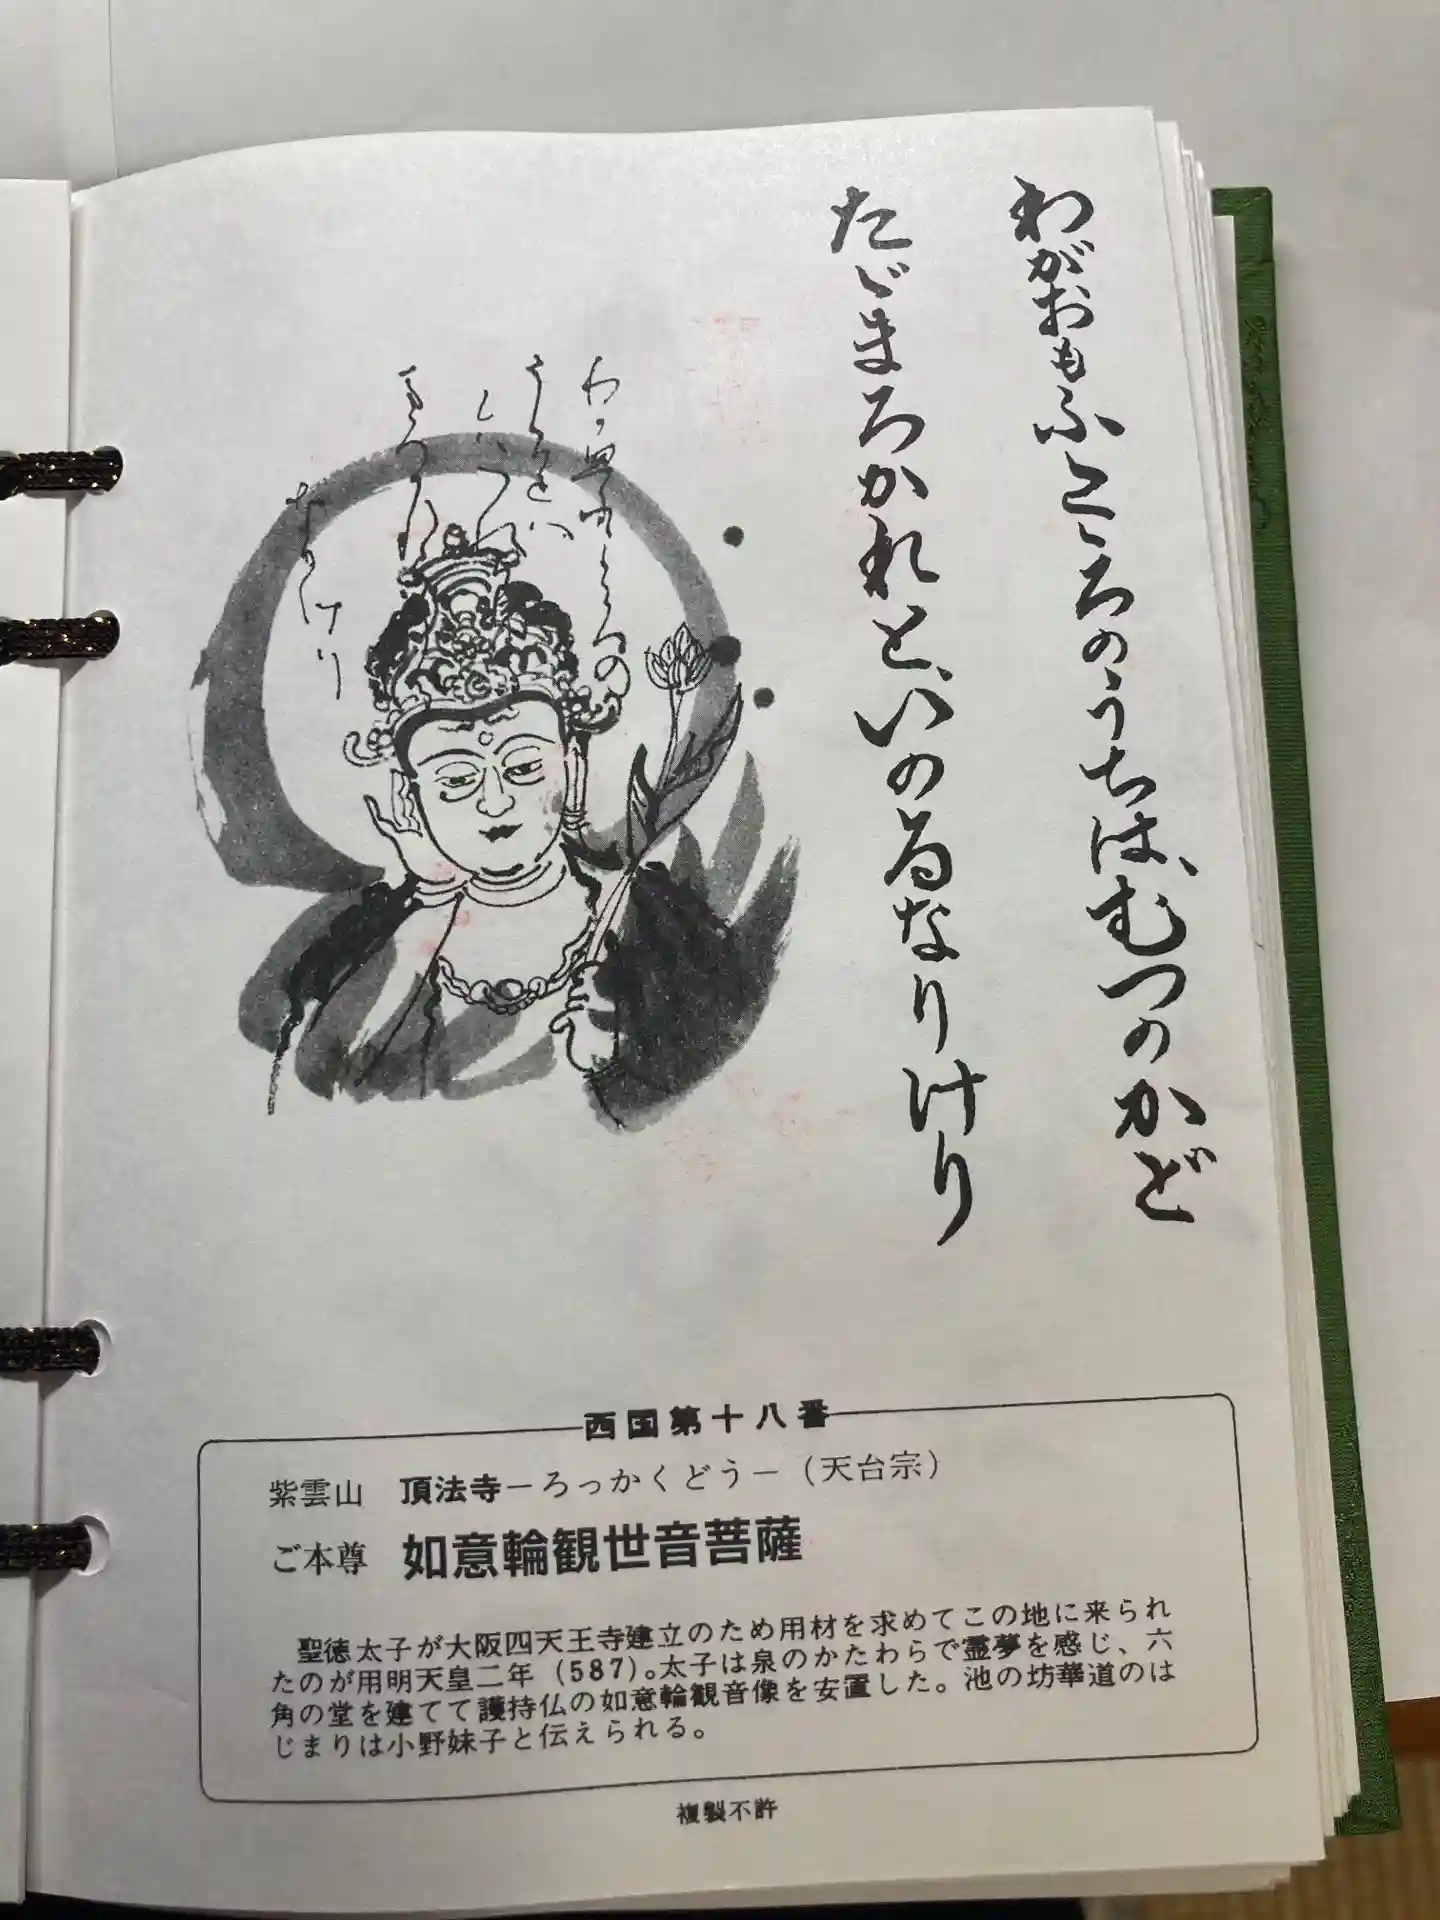 わがおもふこころのうちは、むつのかど
たゞまろかれと、いのるなりけり
西国第十八番
紫雲山 頂法寺－ろっかくどう－（天台宗）
ご本尊 如意輪観世音菩薩
聖徳太子が大阪四天王寺建立のため用材を求めてこの地に来られ
たのが用明天皇二年（587）。太子は泉のかたわらで霊夢を感じ、六
角の堂を建てて護持仏の如意輪観音像を安置した。池の坊華道のは
じまりは小野妹子と伝えられる。
複製不許